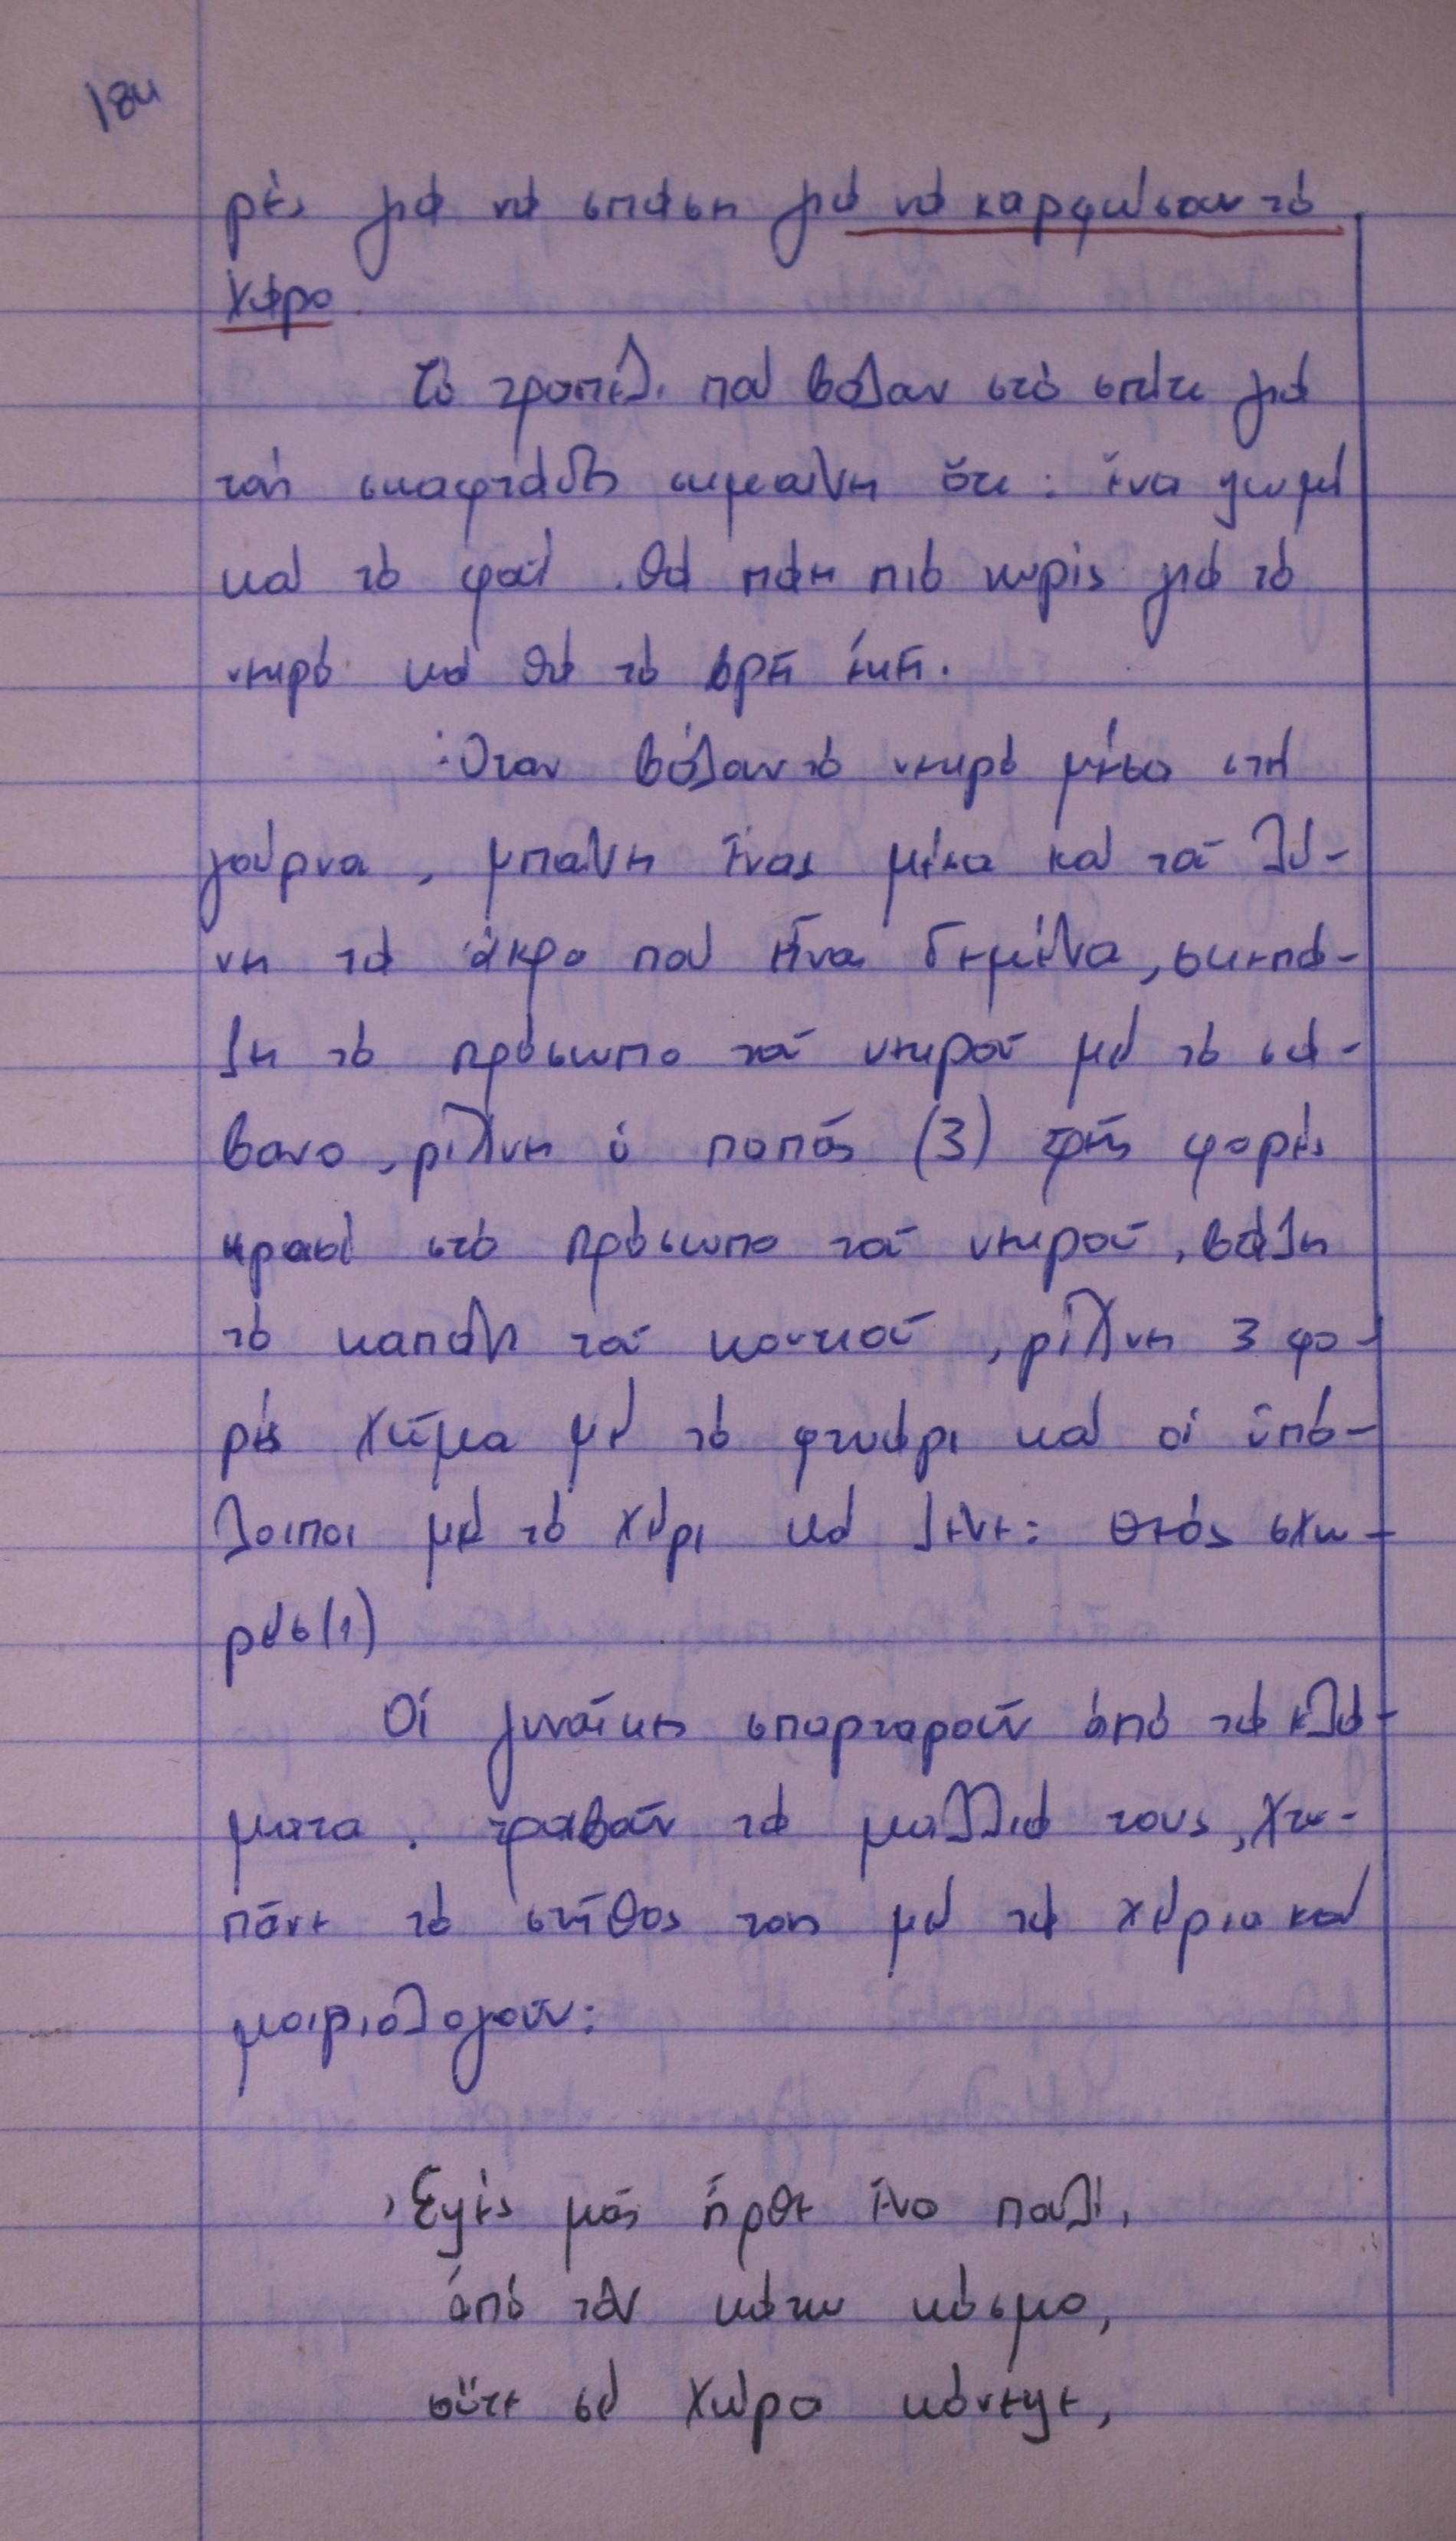 184
ρές γιά νά σπάση γιά νά καρφώσουν τό
χάρο.
Τό τραπέζι πού βάζαν στό σπίτι γιά
τούς σκαφτιάδες σημαίνει ὅτι: ἕνα ψωμί
καί τό φαΐ. θά πάει πιό νωρίς γιά τό
νεκρό καί θά τό βρῆ ἐκεῖ.
Ὅταν βάζαν τό νεκρό μέσα στή
γούρνα, μπαίνει ἕνας μέσα καί τοῦ λύ-
νει τά ἄκρα πού εἶναι δεμένα, σκεπά-
ζει τό πρόσωπο τοῦ νεκροῦ μέ τό σά-
βανο, ρίχνει ὁ παπᾶς (3) τρεῖς φορές
κρασί στό πρόσωπο τοῦ νεκροῦ, βάζει
τό καπάκι τοῦ κουτιοῦ, ρίχνει 3 φο-
ρές χῶμα μέ τό φτυάρι καί οἱ ὑπό-
λοιποι μέ τό χέρι καί λένε: θεός σχω-
ρέσ(1)
Οἱ γυναῖκες σπαρταροῦν ἀπό τά κλά-
ματα. τραβοῦν τά μαλλιά τους, χτυ-
πᾶνε τό στῆθος τους μέ τά χέρια καί
μοιριολογοῦν:
Ἐψές μᾶς ἦρθε ἕνα πουλί,
ἀπό τόν κάτω κόσμο,
οὔτε σέ χώρα κόνεψε,